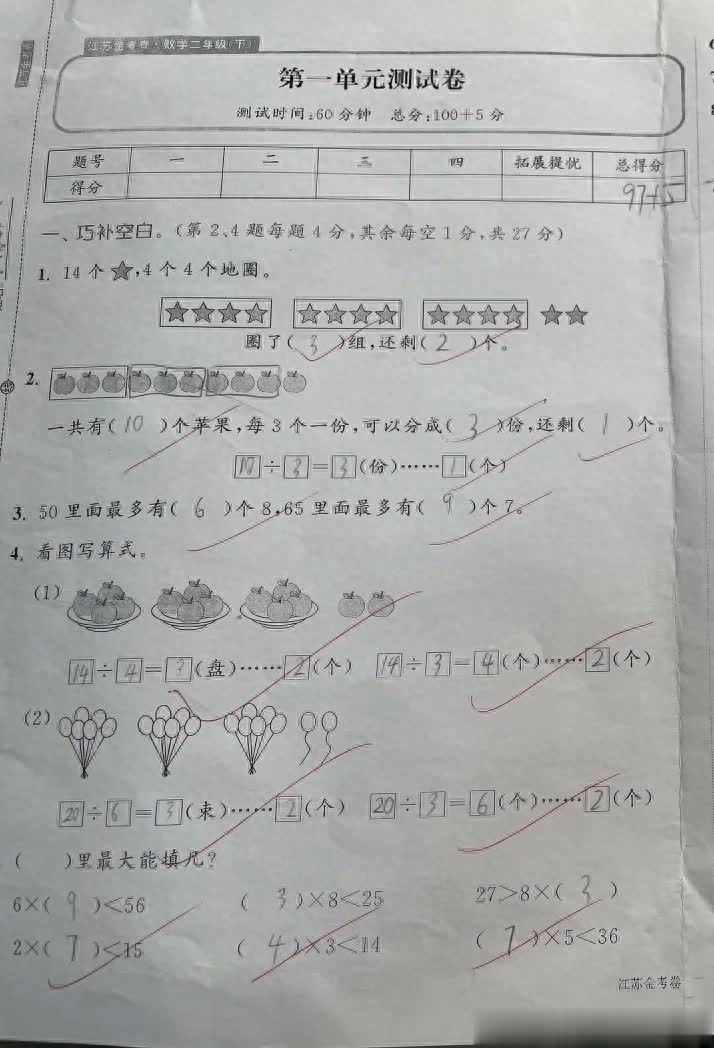 江苏金考卷·数学二年级(下)
第一单元测试卷
测试时间:60分钟 总分:100+5分
题号 一 二 三 四 拓展提优 总得分
得分 97+5
一、巧补空白。(第2、4题每题4分,其余每空1分,共27分)
1. 14个☆,4个4个地圈。
圈了( 3 )组,还剩( 2 )个。
2.
一共有( 10 )个苹果,每3个一份,可以分成( 3 )份,还剩( 1 )个。
10÷3=3(份)……1(个)
3. 50里面最多有( 6 )个8,65里面最多有( 9 )个7。
4. 看图写算式。
(1)
14÷4=3(盘)……2(个) 14÷3=4(个)……2(个)
(2)
20÷6=3(束)……2(个) 20÷3=6(个)……2(个)
( )里最大能填几?
6×( 9 )<56 ( 3 )×8<25 27>8×( 3 )
2×( 7 )<15 ( 4 )×3<14 ( 7 )×5<36
江苏金考卷